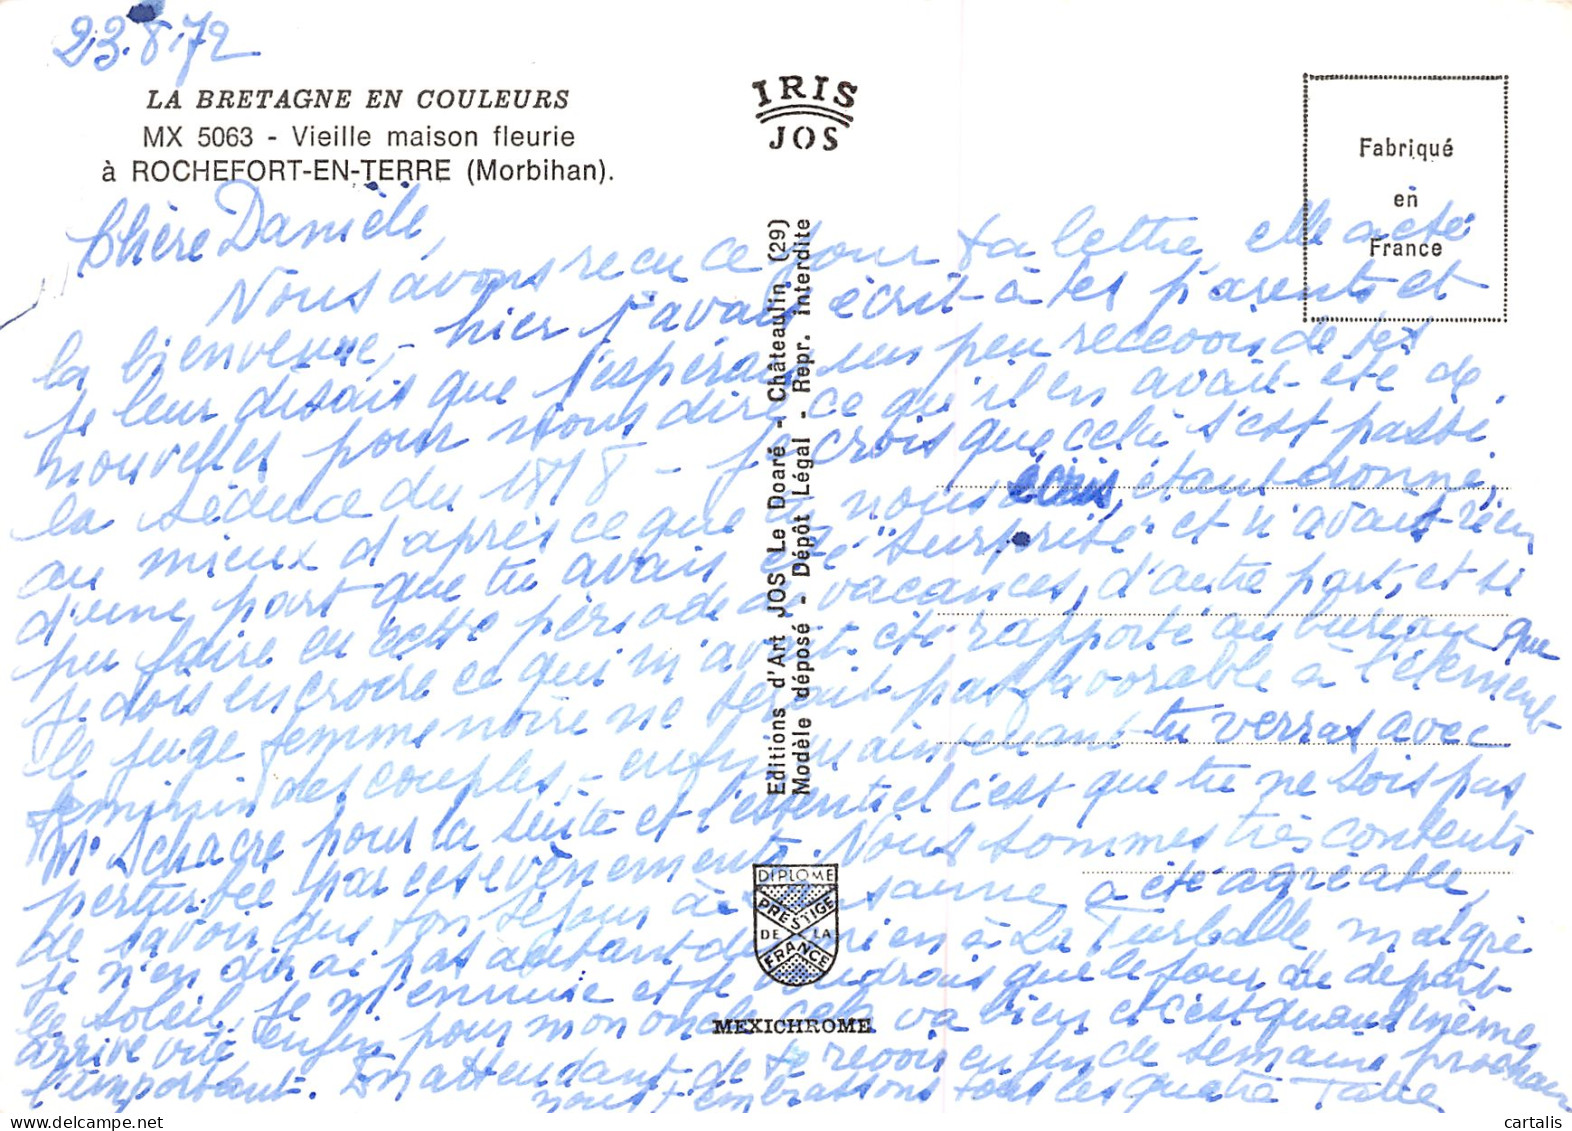 23.8.72
LA BRETAGNE EN COULEURS
MX 5063 - Vieille maison fleurie
à ROCHEFORT-EN-TERRE (Morbihan).
IRIS
JOS
Fabriqué
en
France
Editions d'Art JOS Le Doaré - Châteaulin (29)
Modèle déposé - Dépôt Légal - Repr. interdite
DIPLOME
PRESTIGE
DE LA
FRANCE
MEXICHROME
Chère Danièle,
Nous avons reçu ce jour ta lettre, elle a été
la bienvenue, - hier j'avais écrit à tes parents et
je leur disais que j'espérais un peu recevoir de tes
nouvelles pour nous dire ce qu'il en avait été de
la séance du 18/8 - je crois que cela s'est passé
au mieux d'après ce que tu nous écris, étant donné,
d'une part que tu avais été "surprise" et n'avait rien
pu faire en cette période de vacances, d'autre part, et si
je dois en croire ce qui m'avait été rapporté au bureau que
le juge femme noire ne serait pas favorable à l'élément
féminin des couples, - enfin maintenant tu verras avec
Mr Schacre pour la suite et l'essentiel c'est que tu ne sois pas
perturbée par ces évènements. Nous sommes très contents
de savoir que ton séjour à a été agréable,
je n'en dirai pas autant du rien à La Turballe, malgré
le soleil, je m'ennuie et je voudrais que le jour de départ
arrive vite, enfin pour mon oncle cela va bien et c'est quand même
l'important. En attendant de te revoir en fin de semaine prochaine
nous t'embrassons tous les quatre Tatie
cartalis